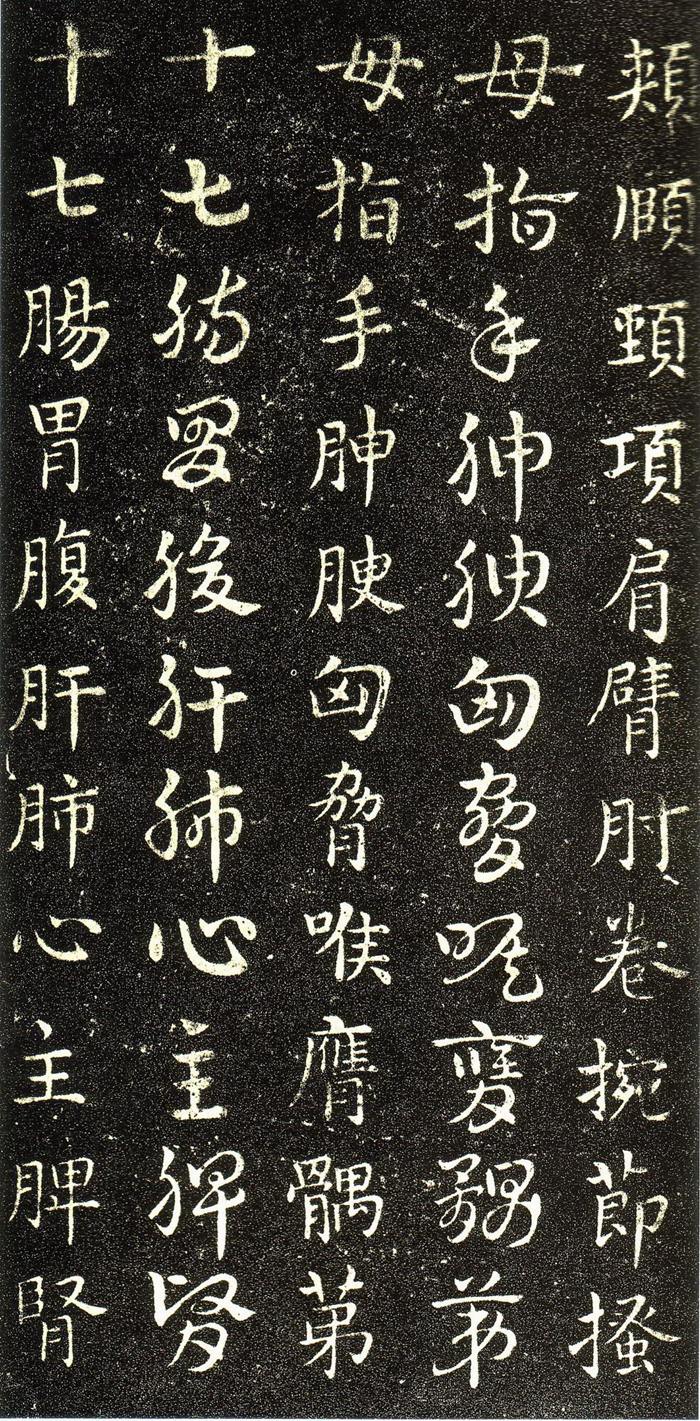 頰頤頸項肩臂肘卷捥節搔
母指手胂腴匈脅喉膺髃苐
母指手胂腴匈脅喉膺髃苐
十七腸胃腹肝肺心主脾腎
十七腸胃腹肝肺心主脾腎